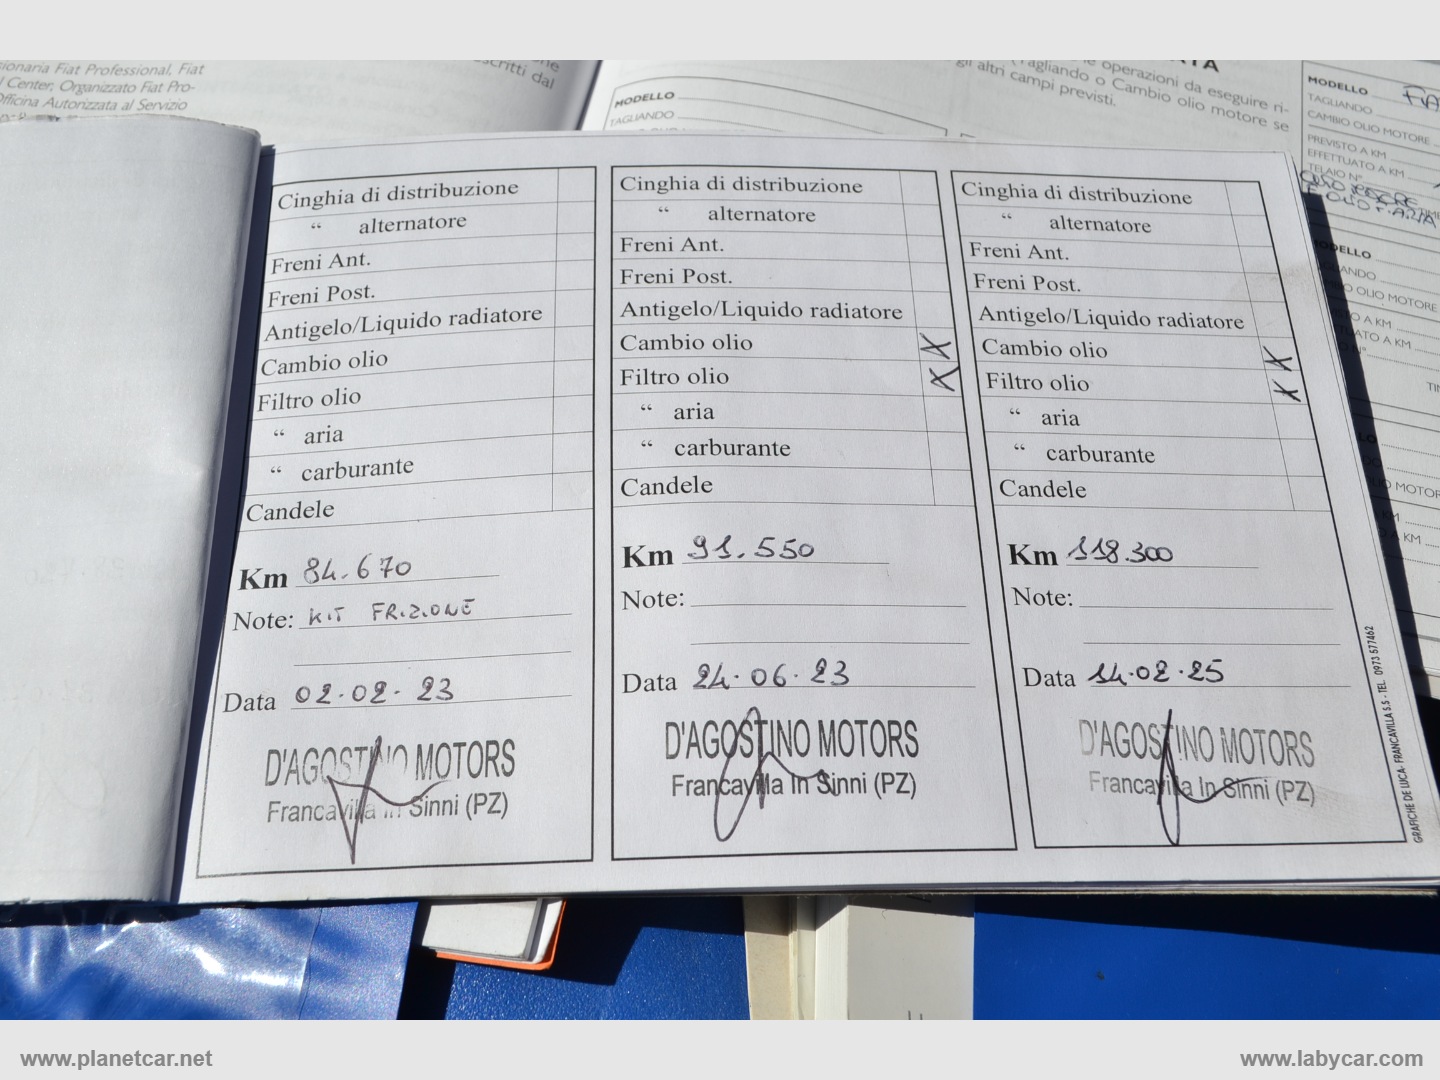 sionaria Fiat Professional, Fiat
l Center, Organizzato Fiat Pro-
Officina Autorizzata al Servizio
scritti dal
operazioni da eseguire ri-
Tagliando o Cambio olio motore se
gli altri campi previsti.
MODELLO
TAGLIANDO
MODELLO
TAGLIANDO
CAMBIO OLIO MOTORE
PREVISTO A KM
EFFETTUATO A KM
TELAIO N°
MODELLO
Cinghia di distribuzione
“ alternatore
Freni Ant.
Freni Post.
Antigelo/Liquido radiatore
Cambio olio
Filtro olio
“ aria
“ carburante
Candele
Km 84.670
Note: KIT FRIZIONE
Data 02.02.23
D'AGOSTINO MOTORS
Francavilla In Sinni (PZ)
Cinghia di distribuzione
“ alternatore
Freni Ant.
Freni Post.
Antigelo/Liquido radiatore
Cambio olio X
Filtro olio X
“ aria
“ carburante
Candele
Km 91.550
Note:
Data 24.06.23
D'AGOSTINO MOTORS
Francavilla In Sinni (PZ)
Cinghia di distribuzione
“ alternatore
Freni Ant.
Freni Post.
Antigelo/Liquido radiatore
Cambio olio X
Filtro olio X
“ aria
“ carburante
Candele
Km 118.300
Note:
Data 14.02.25
D'AGOSTINO MOTORS
Francavilla In Sinni (PZ)
GRAFICHE DE LUCA - FRANCAVILLA S.S - TEL. 0973 577462
www.planetcar.net
www.labycar.com